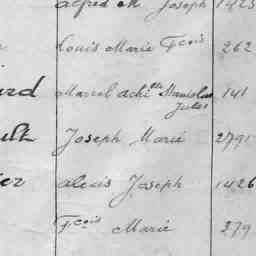 alfred M Joseph 1423
Louis Marie Fcois 262
ard Marcel achille Stanislas 141
Jules
ult Joseph Marie 2791
ier alexis Joseph 1426
Fcois Marie 279